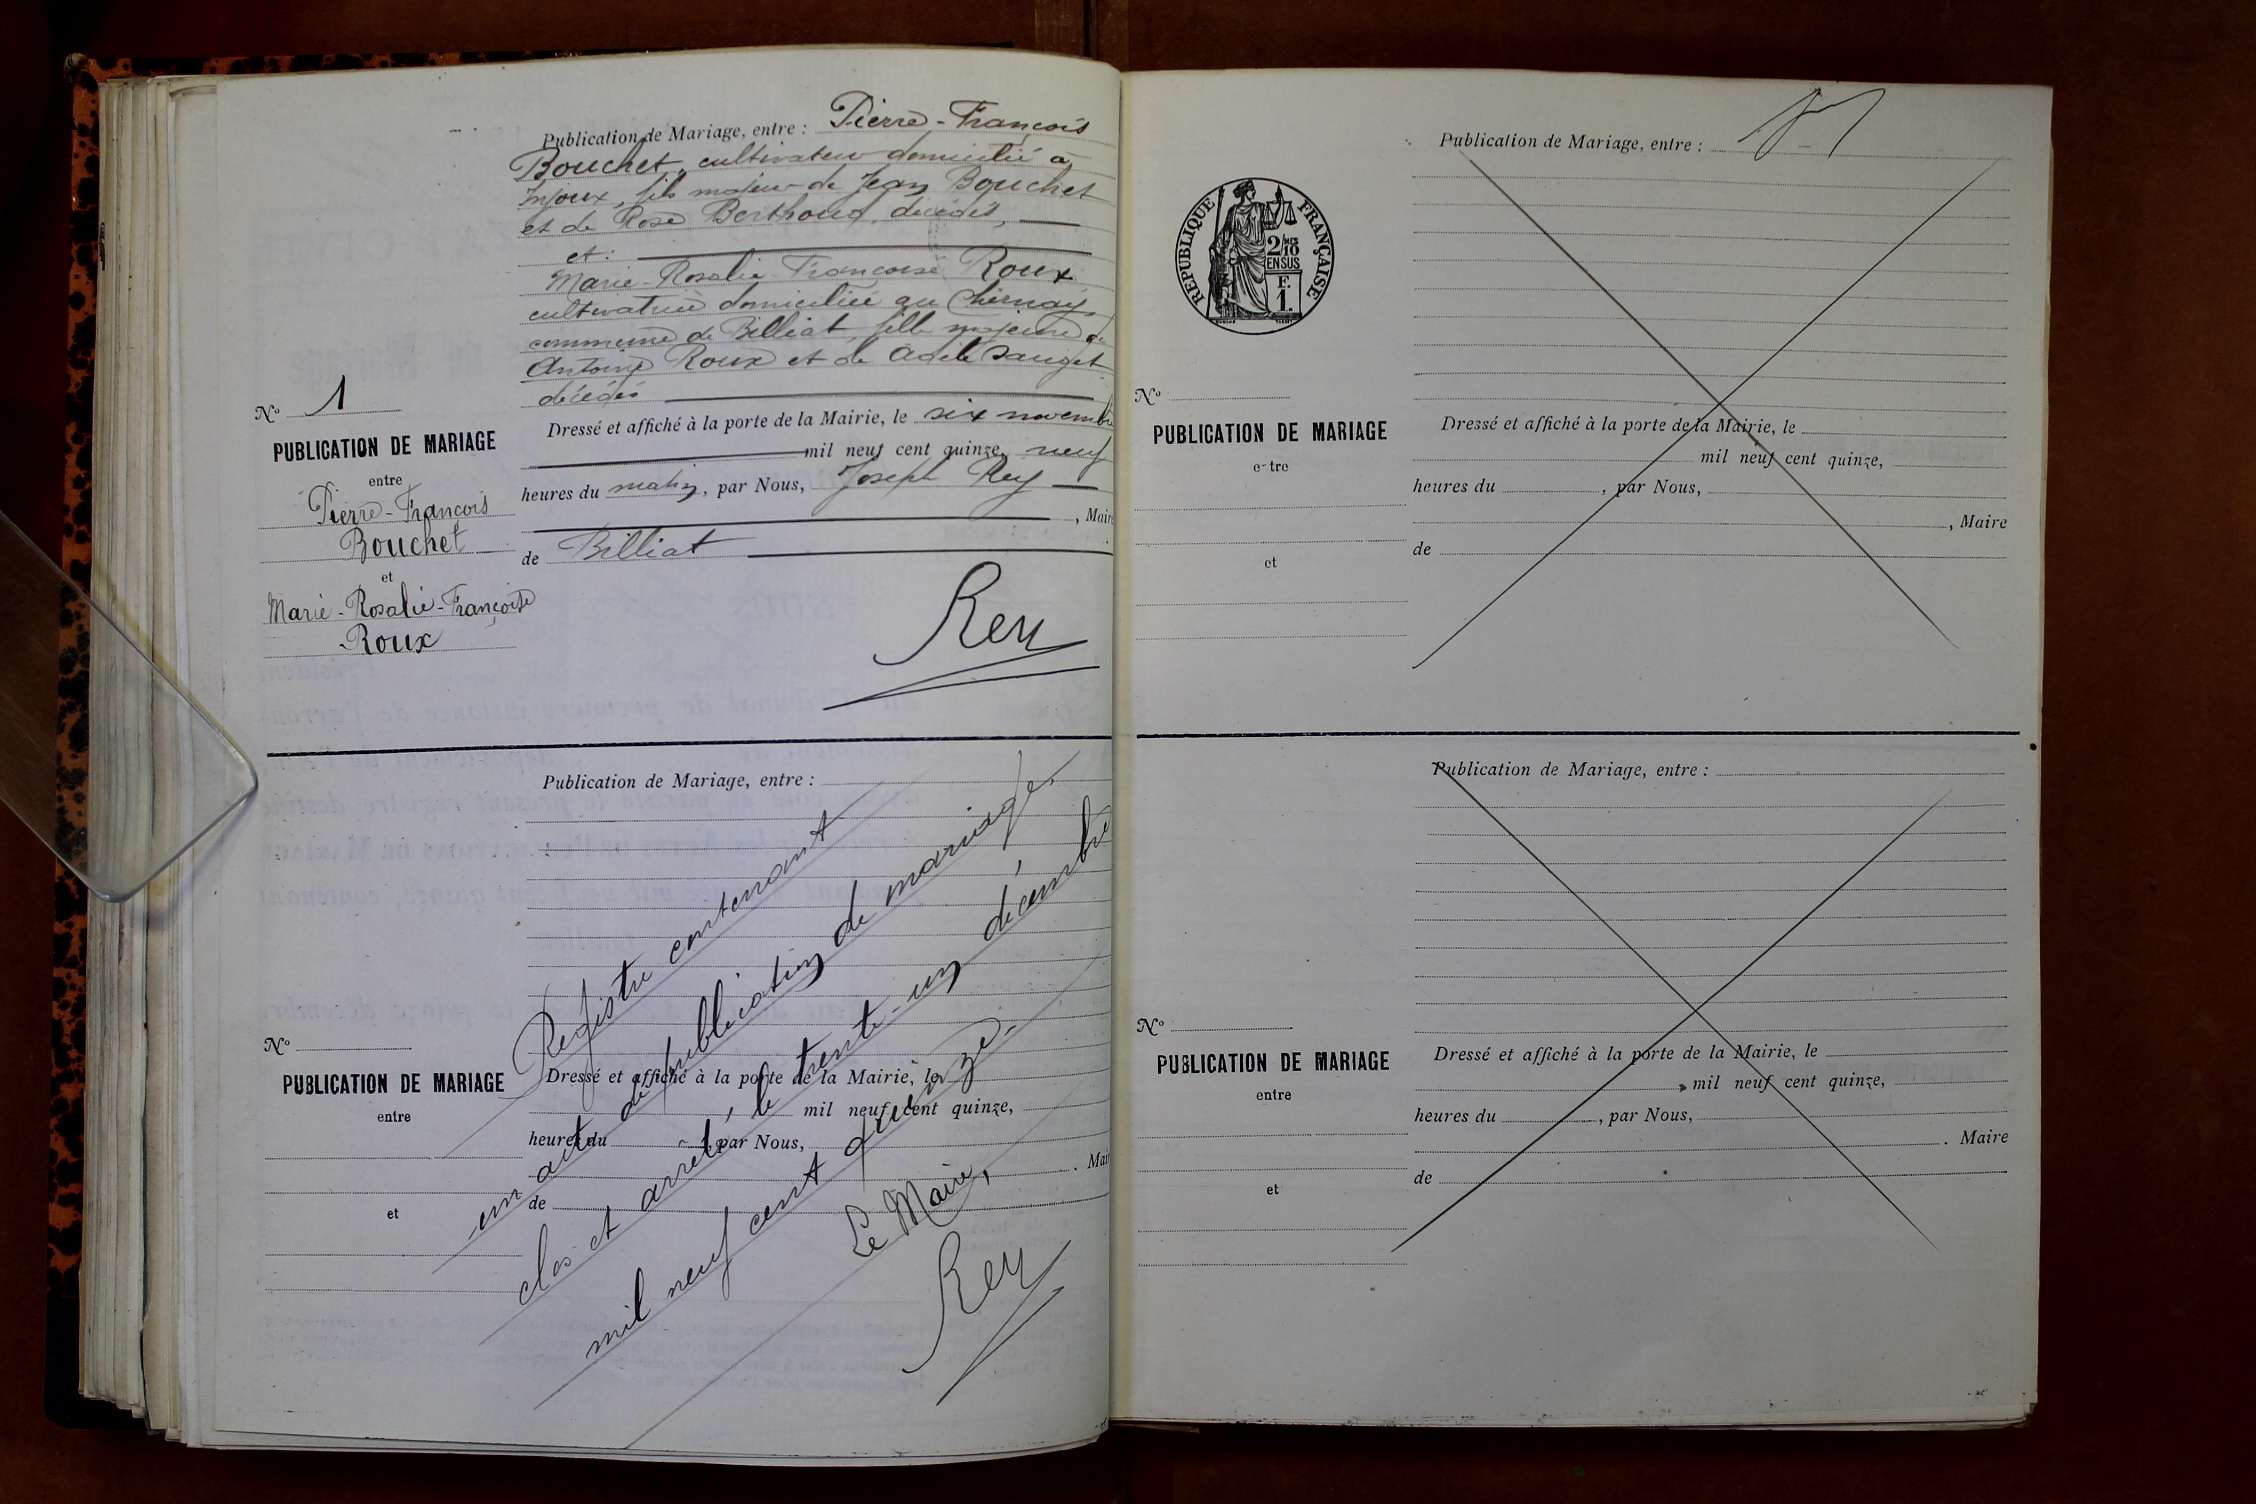 Publication de Mariage, entre : Pierre-François
Bouchet, cultivateur domicilié à
Injoux, fils majeur de Jean Bouchet
et de Rose Berthoud, décédés,
et :
Marie-Rosalie Françoise Roux
cultivatrice domiciliée au Chernay,
commune de Billiat, fille majeure de
Antoine Roux et de Adèle Sauget
décédés
Dressé et affiché à la porte de la Mairie, le six novembre
mil neuf cent quinze, neuf
heures du matin, par Nous, Joseph Rey
, Maire
de Billiat
Rey
N° 1
PUBLICATION DE MARIAGE
entre
Pierre-François
Bouchet
et
Marie-Rosalie-Françoise
Roux
Publication de Mariage, entre :
Dressé et affiché à la porte de la Mairie, le
mil neuf cent quinze,
heures du , par Nous,
. Mai
de
N°
PUBLICATION DE MARIAGE
entre
et
Registre contenant
un acte de publication de mariage.
clos et arrêté, le trente-un décembre
mil neuf cent quinze.
Le Maire,
Rey
Publication de Mariage, entre :
RÉPUBLIQUE FRANÇAISE
2/10 MES
EN SUS
F.
1.
N°
PUBLICATION DE MARIAGE
entre
et
Dressé et affiché à la porte de la Mairie, le
mil neuf cent quinze,
heures du , par Nous,
, Maire
de
Publication de Mariage, entre :
N°
PUBLICATION DE MARIAGE
entre
et
Dressé et affiché à la porte de la Mairie, le
mil neuf cent quinze,
heures du , par Nous,
. Maire
de